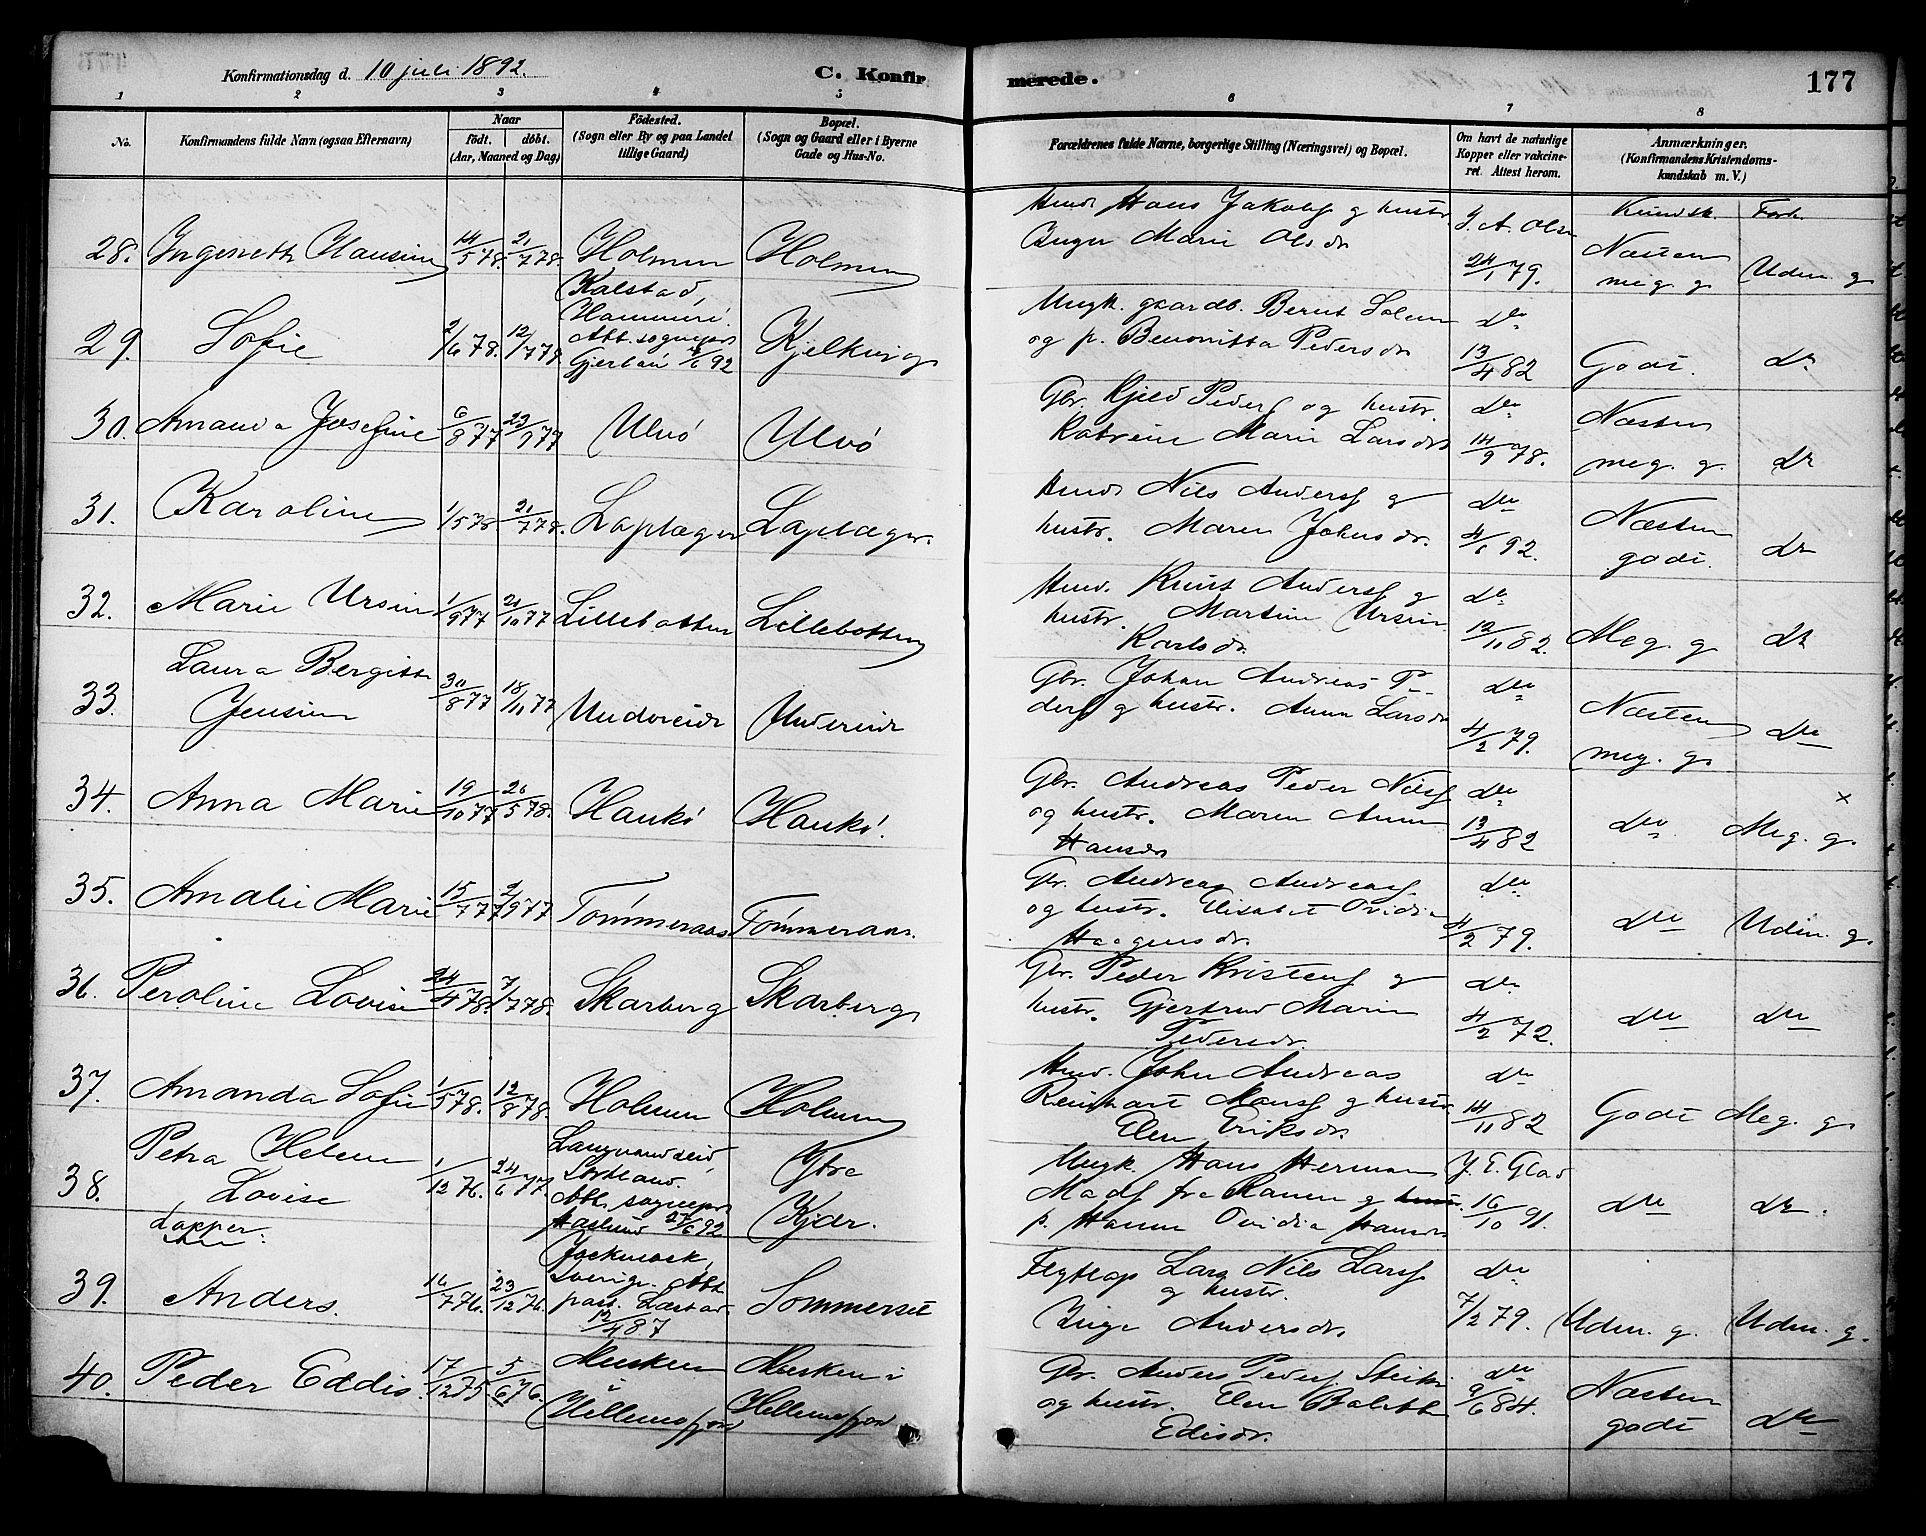 Konfirmationsdag d. 10 juli 1892.
C. Konfirmerede.
177
1 2 3 4 5 6 7 8
No.
Konfirmandens fulde Navn (ogsaa Efternavn)
Naar
födt. döbt.
(Aar, Maaned og Dag)
Födested.
(Sogn eller By og paa Landet
tillige Gaard)
Bopæl.
(Sogn og Gaard eller i Byerne
Gade og Hus-No.
Forældrenes fulde Navne, borgerlige Stilling (Næringsvei) og Bopæl.
Om havt de naturlige
Kopper eller vakcine-
ret. Attest herom.
Anmærkninger.
(Konfirmandens Kristendoms-
kundskab m. V.)
Kundsk. Forh.
28. Ingenette Hansine 14/5 78. 21/7 78. Holmen Holmen
Hans Jakobs. og hustr.
Inger Marie Olsdr
J. A. Olsen
24/1 79.
Næsten
meg. g. Uden. g
29. Sofie 2/6 78. 12/7 78.
Kalstad,
Hammerö.
Att. sognepr
Kjelkvig
Ungk. gaardb. Bernt Solem
og p. Benonitta Pedersdr
do
13/4 82 Godt. do
30. Amanda Josefine 6/8 77 23/9 77 Ulvö Ulvö
Gbr. Kjeld Peders. og hustr.
Katrine Marie Larsdr
do
14/9 78.
Næsten
meg. g. do
31. Karoline 1/5 78 21/7 78. Laptæger Laptæger.
Nils Anders. g
hustr. Maren Johnsdr.
do
4/6 92.
Næsten
godt. do
32. Marie Ursine 1/9 77 21/10 77 Lillebotten Lillebotten
Knut Anders. g
hustr. Martine Ursin
Karlsdr.
do
12/11 82. Meg. g. do
33. Laura Bergitte
Jensine
30/8 77 18/11 77 Undereidr Undereidr
Gbr. Johan Andreas Pe-
ders. g hustr. Anna Larsdr
do
4/2 79.
Næsten
meg. g. do
34. Anna Marie 19/10 77 26/5 78. Haukö Haukö.
Gbr. Andreas Peder Nils.
og hustr. Maren Anna
Hansdr
do
13/4 82 do Meg. g. x
35. Amalie Marie 15/7 77 2/9 77 Tömmeraas Tömmeraas.
Gbr. Andreas Andreas.
og hustr. Elisabet Ovidia
Haagensdr.
do
4/2 79. do Uden. g.
36. Peroline Lovise 24/4 78. 7/7 78. Skarberg Skarberg
Gbr. Peder Kristens. g
hustr. Gjertrud Marie
Pedersdr.
do
4/2 72. do do
37. Amanda Sofie 1/5 78. 12/8 78. Holmen Holmen
John Andreas
Reinhart Mons. g hustr.
Elen Eriksdr.
do
14/11 82 Godt Meg. g.
38. Petra Helene
Lovise
1/12 76. 24/6 77.
Langvandseid,
Sortland.
Att. sognepr
27/6 92
Ytre
Kjær.
Ungk. Hans Herman
Mads. fra Ranen g
p. Hanna Ovidia Hansdr
J. E. Glad
16/10 91. do do.
39. Lapper:
Anders. 16/7 76. 23/12 76.
Jockmock,
Sverige. Att.
past. Læstad.
12/4 87
Sommerset
Flytlap Lars Nils Lars.
g hustr.
Inga Andersdr.
do
7/2 79. Uden. g. Uden. g.
40. Peder Eddis. 17/12 75 5/6 76.
Musken
i
Hellemofjord
Musken i
Hellemofjord
Gbr. Anders Peders.
og hustr. Elen
Edisdr.
do
9/6 84.
Næsten
godt do